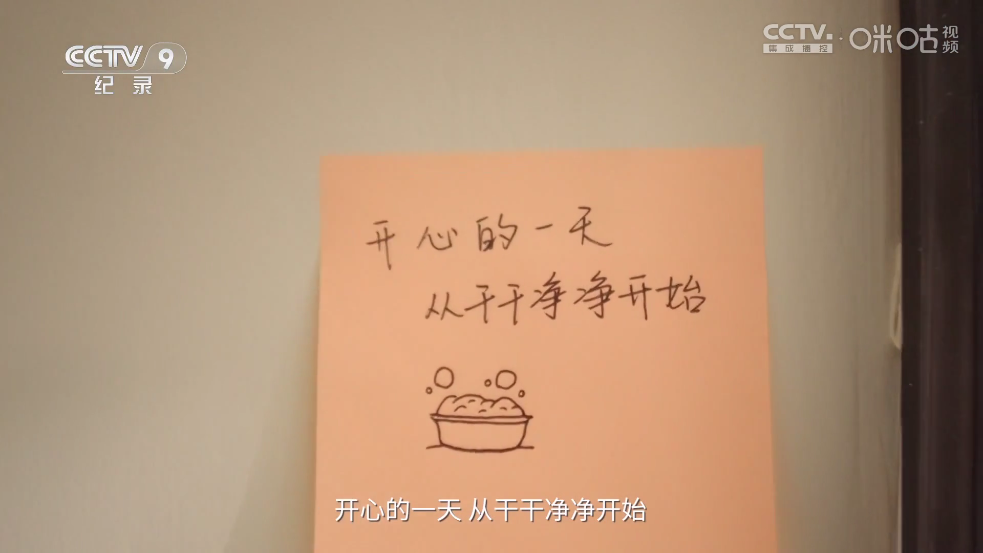 CCTV 9
纪录
CCTV.
集成播控
咪咕视频
开心的一天
从干干净净开始
开心的一天 从干干净净开始